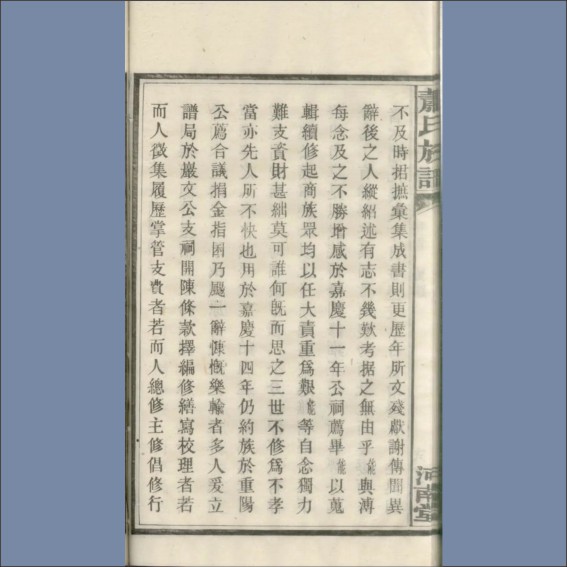 蕭氏族譜
河南堂
不及時捃摭彙集成書則更歷年所文殘獻謝傳聞異
辭後之人縱紹述有志不幾歎考据之無由乎能與溥
每念及之不勝增感於嘉慶十一年公祠薦畢能以蒐
輯續修起商族眾均以任大責重為艱能等自念獨力
難支資財甚絀莫可誰何既而思之三世不修為不孝
當亦先人所不快也用於嘉慶十四年仍約族於重陽
公薦合議捐金指囷乃颺一辭慷慨樂輸者多人爰立
譜局於嚴文公支祠開陳條款擇編修繕寫校理者若
而人徵集履歷掌管支費者若而人總修主修倡修行